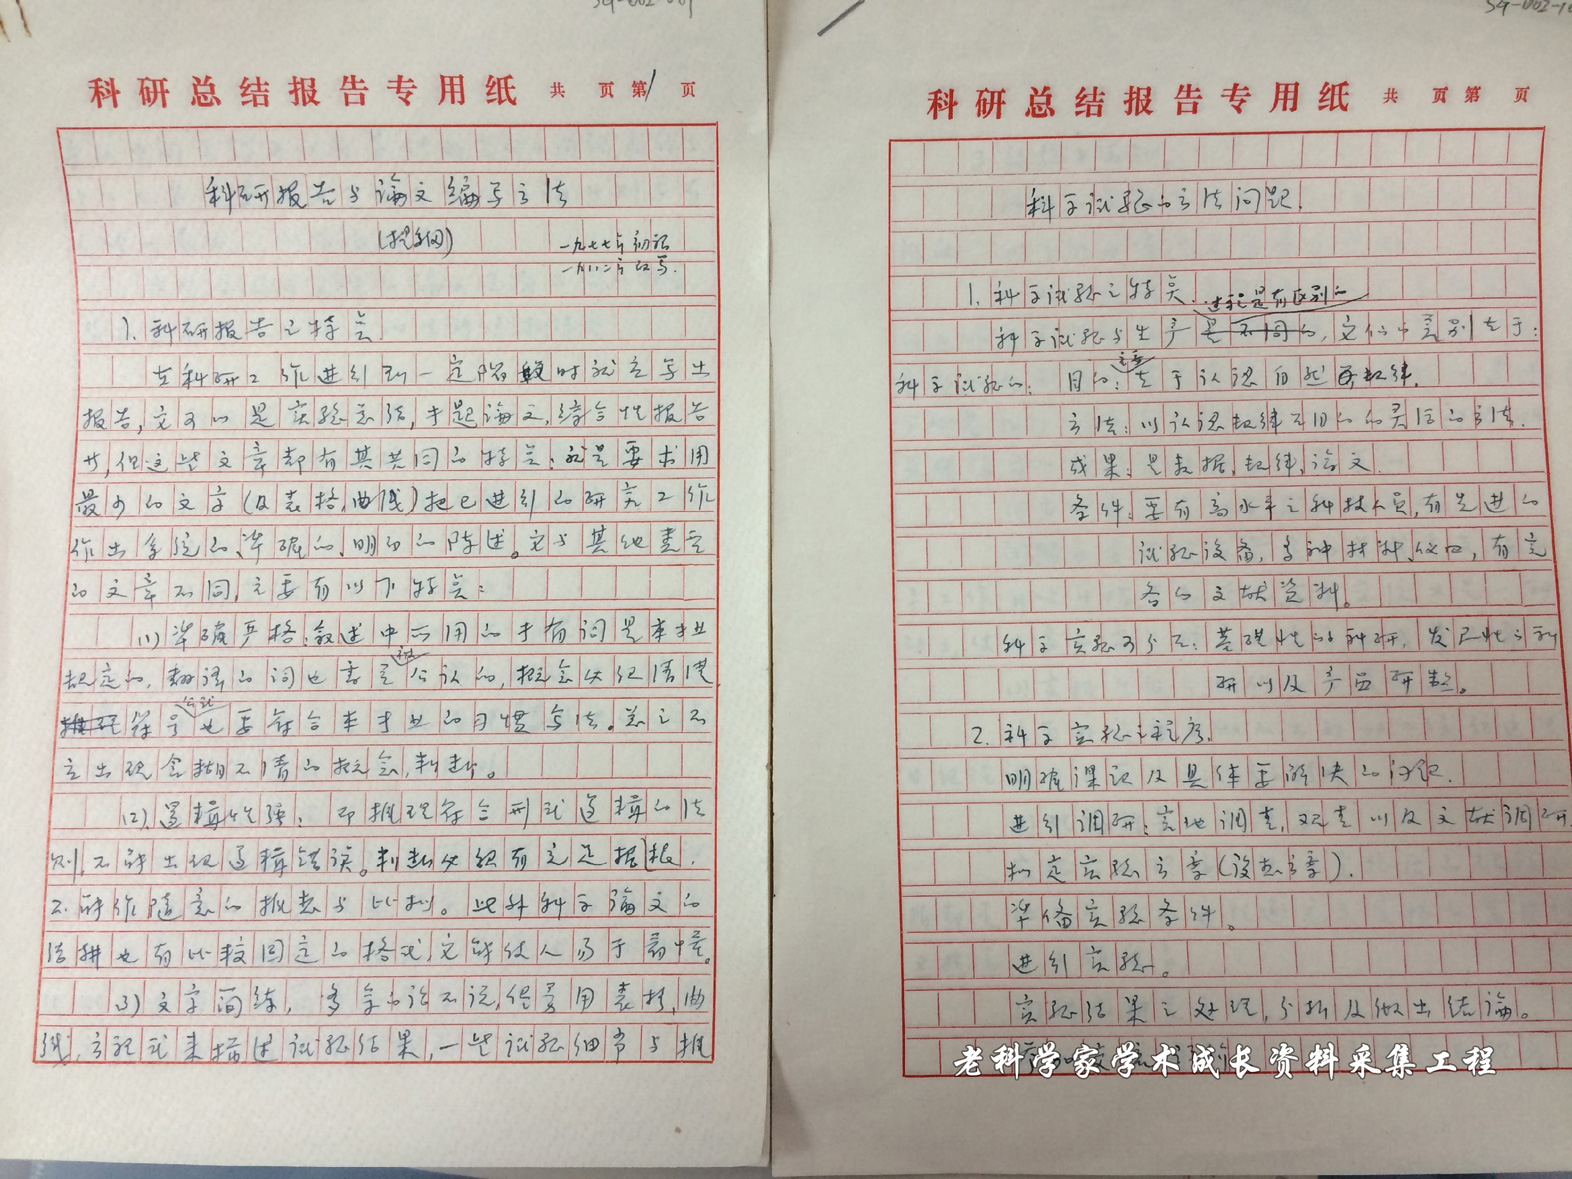 科研总结报告专用纸 共 页 第1页
科研报告与论文编写方法
(提纲)
一九七七年初
一九八二年改写.
1. 科研报告之特点
在科研工作进行到一定阶段时就应写出
报告,它可以是实验总结,专题论文,综合性报告
等,但这些文章都有其共同的特点:就是要求用
最少的文字(及表格,曲线)把已进行的研究工作
作出系统的、准确的、明白的陈述。它与其他
的文章不同,主要有以下特点:
(1)准确严格:叙述中所用的专有词是本专业
规定的,翻译的词也应是公认的,概念必须清楚,
符号公式也要符合本专业的习惯写法。总之不
应出现含糊不清的概念,判断。
(2).逻辑性强:即推理符合形式逻辑的法
则,不能出现逻辑错误。判断必须有充足根据,
不能作随意的推想与比拟。此外科学论文的
结构也有比较固定的格式,它能使人易于看懂。
(3)文字简练,多余的话不说,尽量用表格,曲
线,方程式来描述试验结果,一些试验细节与推
科研总结报告专用纸 共 页 第 页
科学试验的方法问题.
1. 科学试验之特点.
过程是有区别的
科学试验与生产是不同的,它们的差别在于:
科学试验的: 目的:主要在于认识自然规律.
方法:以认识规律为目的的灵活的方法.
成果:是数据,规律,论文.
条件:要有高水平之科技人员,有先进的
试验设备,多种材料,仪器,有完
备的文献资料。
科学实验可分为:基础性的科研,发展性之科
研以及产品研制。
2. 科学实验之程序.
明确课题及具体要解决的问题.
进行调研:实地调查,观查以及文献调研
拟定实验方案(设想方案).
准备实验条件。
进行实验。
实验结果之处理,分析及做出结论。
老科学家学术成长资料采集工程